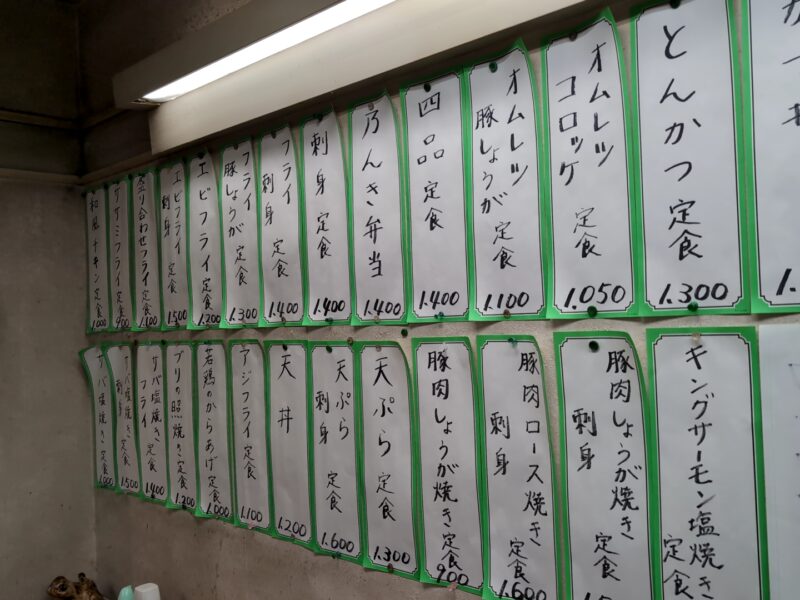 とんかつ定食
1.300
オムレツ
コロッケ
定食
1.050
オムレツ
豚しょうが
定食
1.100
四品定食
1.400
乃んき弁当
1.400
刺身定食
1.400
フライ
刺身
定食
1.400
フライ
豚しょうが
定食
1.300
エビフライ定食
1.200
エビフライ
刺身
定食
1.500
盛り合わせフライ定食
1.400
ササミフライ定食
900
和風チキン定食
1.000
キングサーモン塩焼き
定食
豚肉しょうが焼き
刺身
定食
豚肉ロース焼き
刺身
定食
1.600
豚肉しょうが焼き定食
900
天ぷら定食
1.300
天ぷら
刺身
定食
1.600
天丼
1.200
アジフライ定食
1.100
若鶏のからあげ定食
1.000
ブリの照焼き定食
1.200
サバ塩焼き
フライ
定食
1.400
サバ塩焼き
刺身
定食
1.500
サバ塩焼き定食
1.000